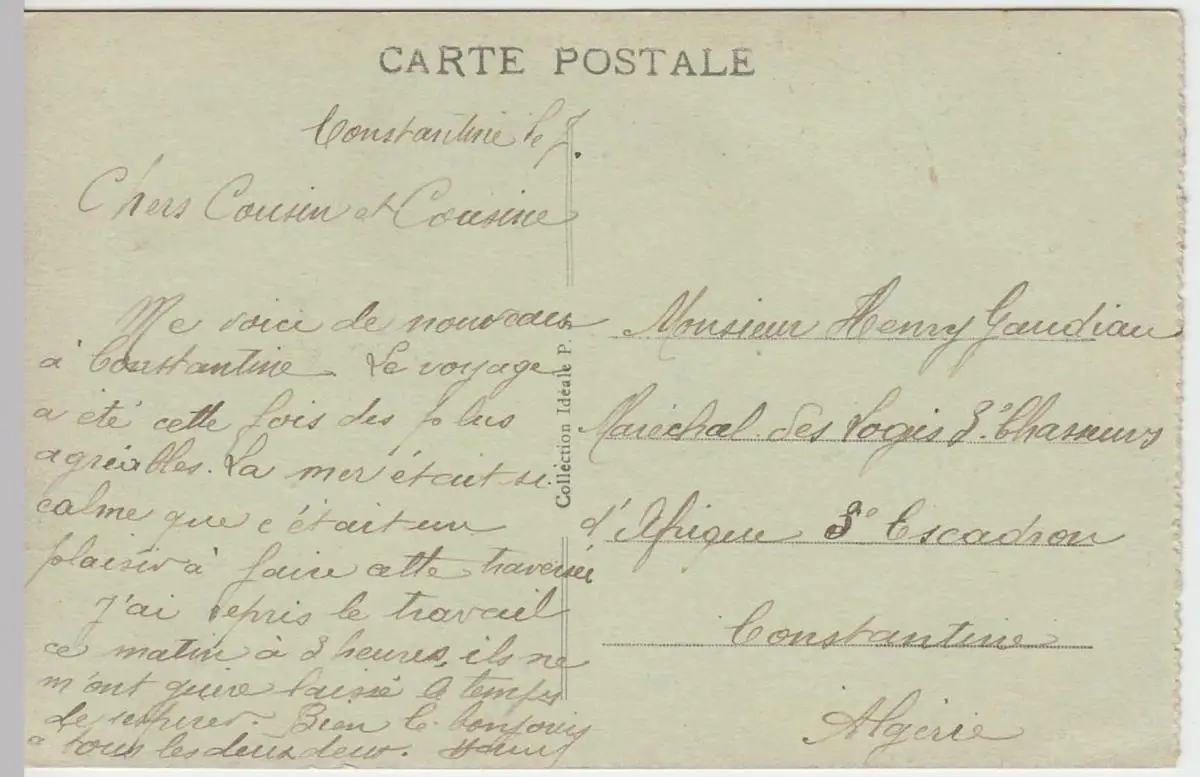 CARTE POSTALE
Constantine le
Chers Cousin et Cousine
Me voici de nouveau
à Constantine. Le voyage
a été cette fois des plus
agréables. La mer était si
calme que c'était un
plaisir à faire cette traversée
J'ai repris le travail
ce matin à 3 heures, ils ne
m'ont guère laissé le temps
de respirer. Bien le bonjour
à tous les deux Henry
Collection Idéale P.
Monsieur Henry Gaudiau
Maréchal des Logis 3e Chasseurs
d'Afrique 3e Escadron
Constantine
Algérie